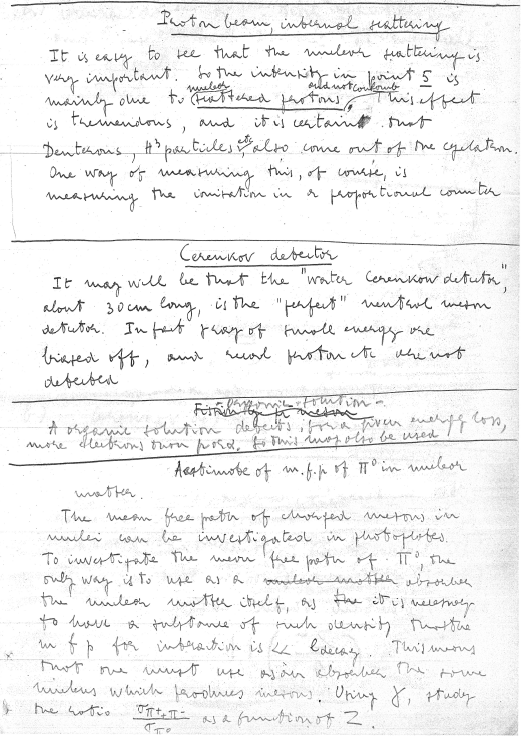 Proton beam, internal scattering
It is easy to see that the nuclear scattering is
very important. So the intensity in point 5 is
nuclear and not coulomb
mainly due to scattered protons. This effect
is tremendous, and it is certain that
Deuterons, H³ particles etc, also come out of the cyclotron.
One way of measuring this, of course, is
measuring the ionisation in a proportional counter
Cerenkov detector
It may well be that the "water Cerenkow detector",
about 30 cm long, is the "perfect" neutral meson
detector. In fact γ ray of small energy are
biased off, and recoil proton etc are not
detected
organic solution
A organic solution detects, for a given energy loss,
more electrons than So this may also be used
Aestimate of m.f.p of π⁰ in nuclear
matter.
The mean free path of charged mesons in
nuclei can be investigated in photoplates.
To investigate the mean free path of π⁰, the
only way is to use as a nuclear matter absorber
the nuclear matter itself, as it is necessary
to have a substance of such density that the
m f p for interaction is << ldecay. This means
that one must use as an absorber the same
nucleus which produces mesons. Using γ, study
the ratio σπ++π-/σπ⁰ as a function of Z.